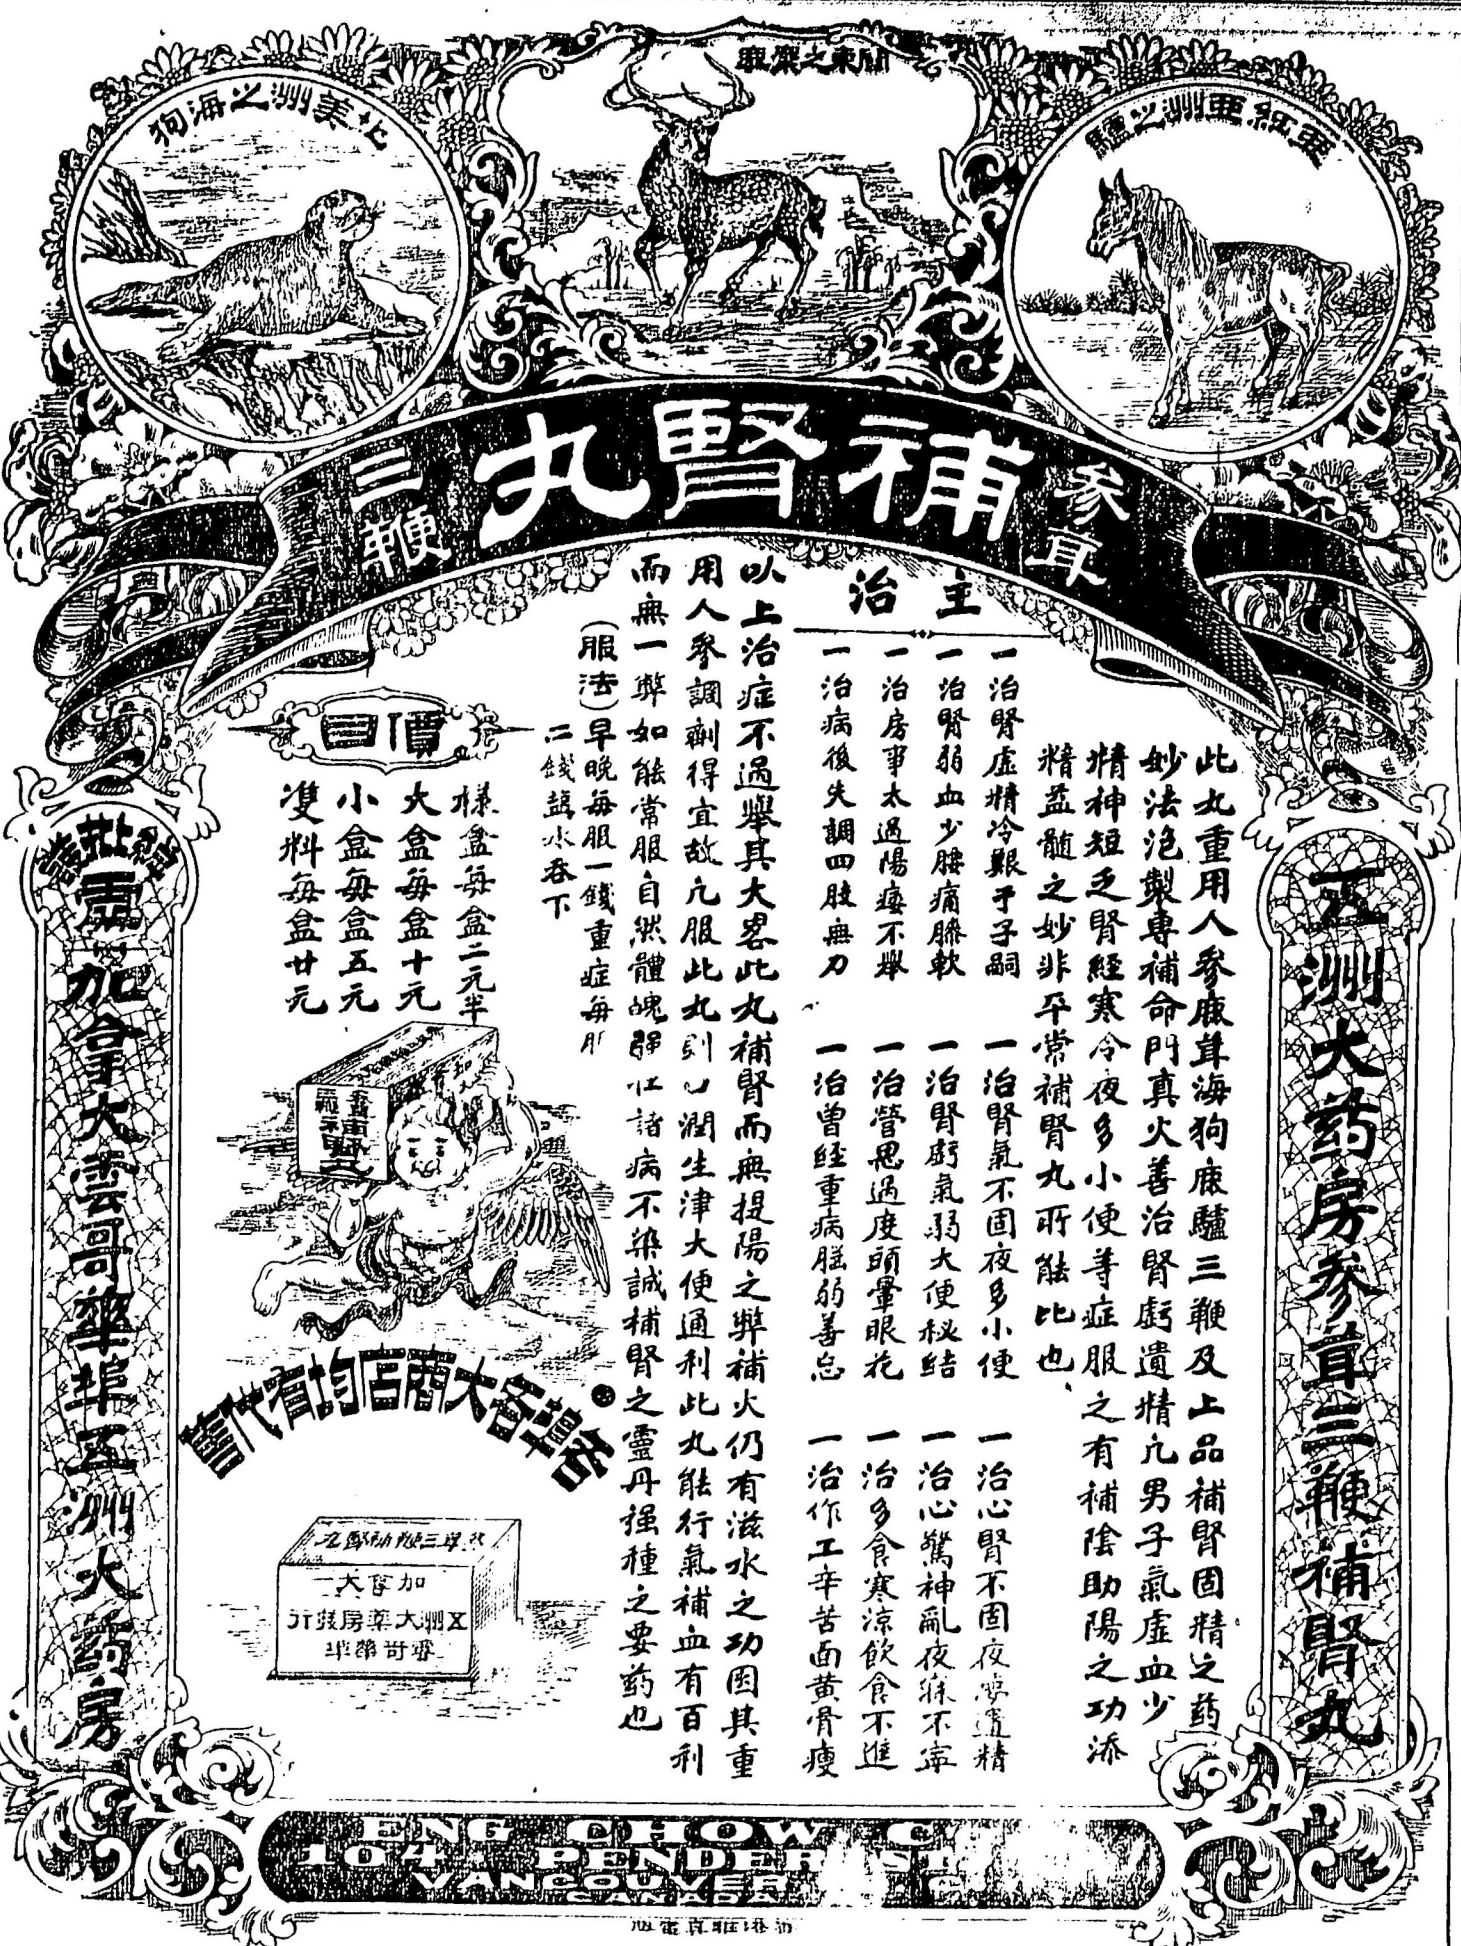 北美洲之海狗
關東之麋鹿
亞細亞洲之驢
參茸
補腎丸
三鞭
五洲大药房參茸三鞭補腎丸
此丸重用人參鹿茸海狗鹿驢三鞭及上品補腎固精之药
妙法泡製專補命門真火善治腎虧遺精凢男子氣虛血少
精神短乏腎經寒冷夜多小便等症服之有補陰助陽之功添
精益髓之妙非平常補腎丸所能比也
主治
一治腎虛精冷艱于子嗣
一治腎氣不固夜多小便
一治心腎不固夜夢遺精
一治腎弱血少腰痛膝軟
一治腎虧氣弱大便秘結
一治心驚神亂夜寐不寧
一治房事太過陽痿不舉
一治營思過度頭暈眼花
一治多食寒涼飲食不進
一治病後失調四肢無力
一治曾經重病腦弱善忘
一治作工辛苦面黄骨瘦
以上治症不過舉其大畧此丸補腎而無提陽之弊補火仍有滋水之功因其重
用人參調劑得宜故凢服此丸則心潤生津大便通利此丸能行氣補血有百利
而無一弊如能常服自然體魄強壮諸病不染誠補腎之靈丹强種之要药也
(服法)早晚每服一錢重症每服
二錢鹽水吞下
價目
樣盒每盒二元半
大盒每盒十元
小盒每盒五元
雙料每盒廿元
補腎丸
各埠各大商店均有代售
茸三鞭補腎丸
加拿大
五洲大藥房發行
雲哥華埠
加拿大雲哥華埠五洲大药房
ENG CHOW
104 PENDER ST
VANCOUVER
CANADA